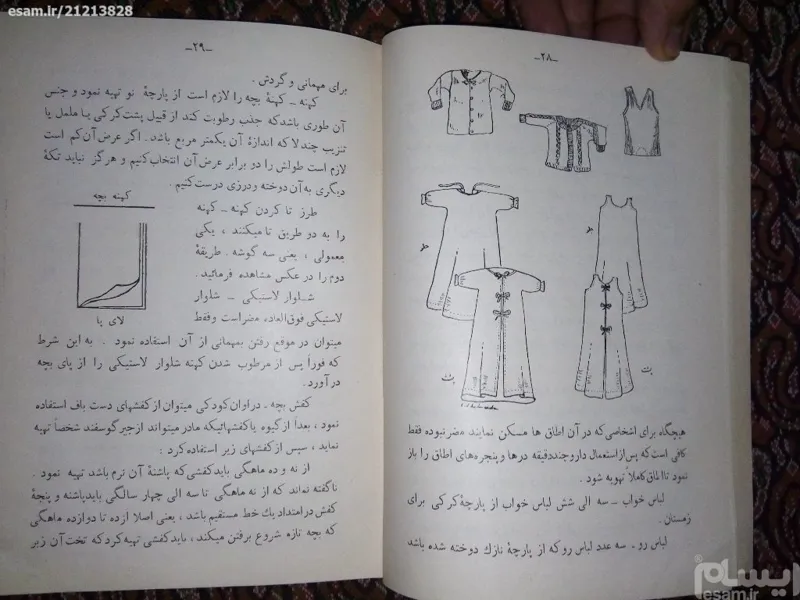 esam.ir/21213828
-۲۸-
پ
پ
هیچگاه برای اشخاصی که در آن اطاق ها مسکن نمایند مضر نبوده فقط
کافی است که پس از استعمال دارو چند دقیقه درها و پنجره‌های اطاق را باز
نمود تا اطاق کاملاً تهویه شود .
لباس خواب – سه الی شش لباس خواب از پارچهٔ کرکی برای
زمستان .
لباس رو – سه عدد لباس رو که از پارچهٔ نازك دوخته شده باشد
-۲۹-
برای مهمانی و گردش .
کهنه – کهنهٔ بچه را لازم است از پارچهٔ نو تهیه نمود و جنس
آن طوری باشد که جذب رطوبت کند از قبیل پشت کرکی یا ململ یا
تنزیب چندلا که اندازهٔ آن یکمتر مربع باشد . اگر عرض آن کم است
لازم است طولش را دو برابر عرض آن انتخاب کنیم و هر گز نباید تکهٔ
دیگری به آن دوخته و درزی درست کنیم .
طرز تا کردن کهنه – کهنه
را به دو طریق تا میکنند ، یکی
معمولی ، یعنی سه گوشه . طریقهٔ
دوم را در عکس مشاهده فرمائید .
کهنه بچه
لای پا
شلوار لاستیکی – شلوار
لاستیکی فوق‌العاده مضر است و فقط
میتوان در موقع رفتن بمهمانی از آن استفاده نمود . به این شرط
که فوراً پس از مرطوب شدن کهنه شلوار لاستیکی را از پای بچه
در آورد .
کفش بچه – در اوان کودکی میتوان از کفشهای دست باف استفاده
نمود ، بعداً از گیوه یا کفشهائیکه مادر میتواند از جیر گوسفند شخصاً تهیه
نماید ، سپس از کفشهای زیر استفاده کرد :
از نه و ده ماهگی باید کفشی که پاشنهٔ آن نرم باشد تهیه نمود .
ناگفته نماند که از نه ماهگی تا سه الی چهار سالگی باید پاشنه و پنجهٔ
کفش در امتداد یك خط مستقیم باشد ، یعنی اصلا از ده تا دوازده ماهگی
که بچه تازه شروع برفتن میکند ، باید کفشی تهیه کرد که تخت آن زیر
ایسام
esam.ir